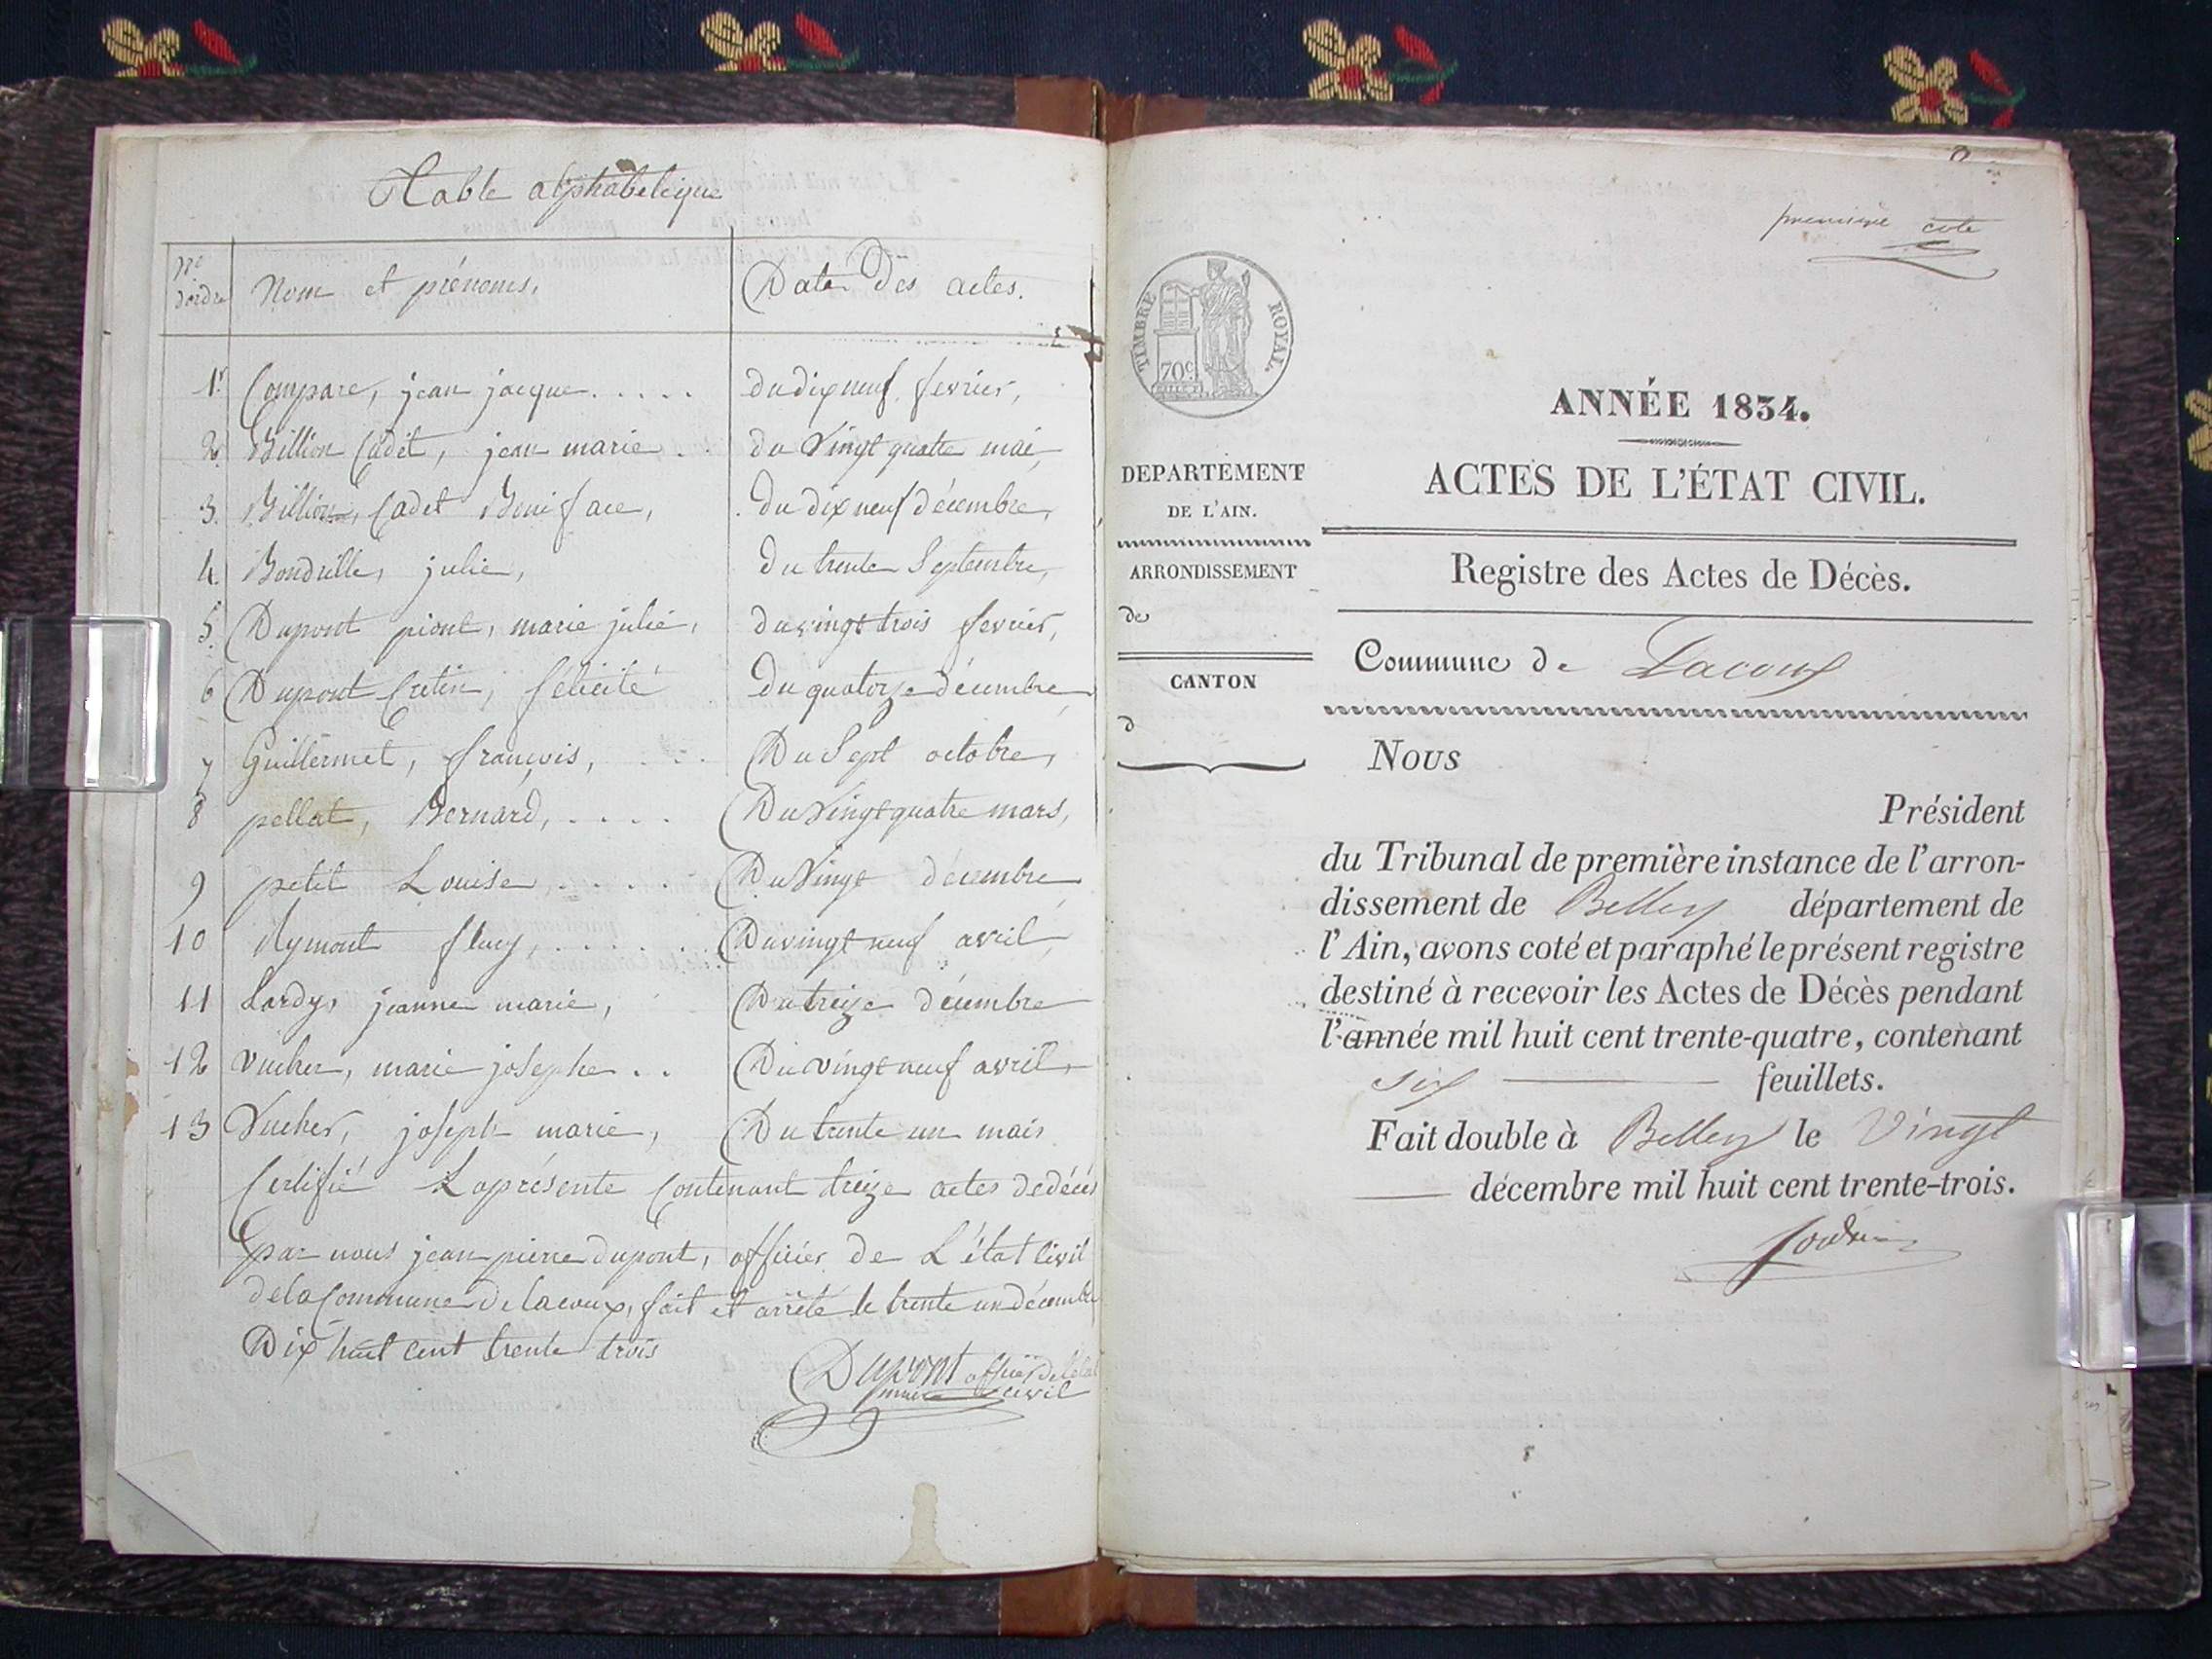 Table alphabetique
Nº d'ordre
Nom et prénoms,
Date Des actes.
1.r Compare, jean jacque..... du dix neuf fevrier,
2. Billion Cadet, jean marie.. du Vingt quatre mai,
3. Billion, Cadet Boniface, Du dix neuf décembre,
4. Bondrille, julie, Du trente Septembre,
5. Dupont piont, marie julie, du vingt trois fevrier,
6 Dupont Cretin, félicité Du quatorze décembre,
7 Guillermet, françois, ... Du Sept octobre,
8 pellat, Bernard, .... Du Vingt quatre mars,
9 petit Louise, .... Du Vingt décembre
10 Aymont fleury, ...... Du vingt neuf avril,
11 Lardy, jeanne marie, Du treize décembre
12 Vucher, marie josephe.. Du vingt neuf avril,
13 Vucher, joseph marie, Du trente un mais
Certifié La présente Contenant treize actes de décés
par nous jean pierre dupont, officier de L'état Civil
de la Commune de lacoux, fait et arrêté le trente un décembre
Dix huit cent trente trois
Dupont officier de l'état
maire civil
première cote
TIMBRE ROYAL.
70c
ANNÉE 1834.
DEPARTEMENT
DE L'AIN.
ACTES DE L'ÉTAT CIVIL.
ARRONDISSEMENT
de
Registre des Actes de Décès.
CANTON
d
Commune de Lacoux
Nous
Président
du Tribunal de première instance de l'arron-
dissement de Belley département de
l'Ain, avons coté et paraphé le présent registre
destiné à recevoir les Actes de Décès pendant
l'année mil huit cent trente-quatre, contenant
six feuillets.
Fait double à Belley le Vingt
décembre mil huit cent trente-trois.